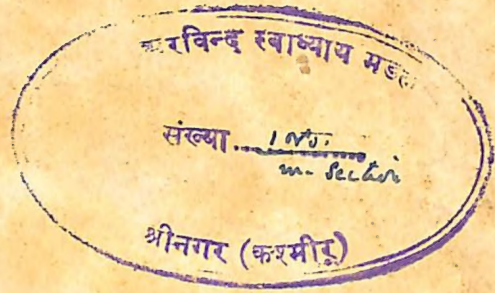 अरविन्द स्वाध्याय मंडल
संख्या 1 No.
m- Section
श्रीनगर (कश्मीर)